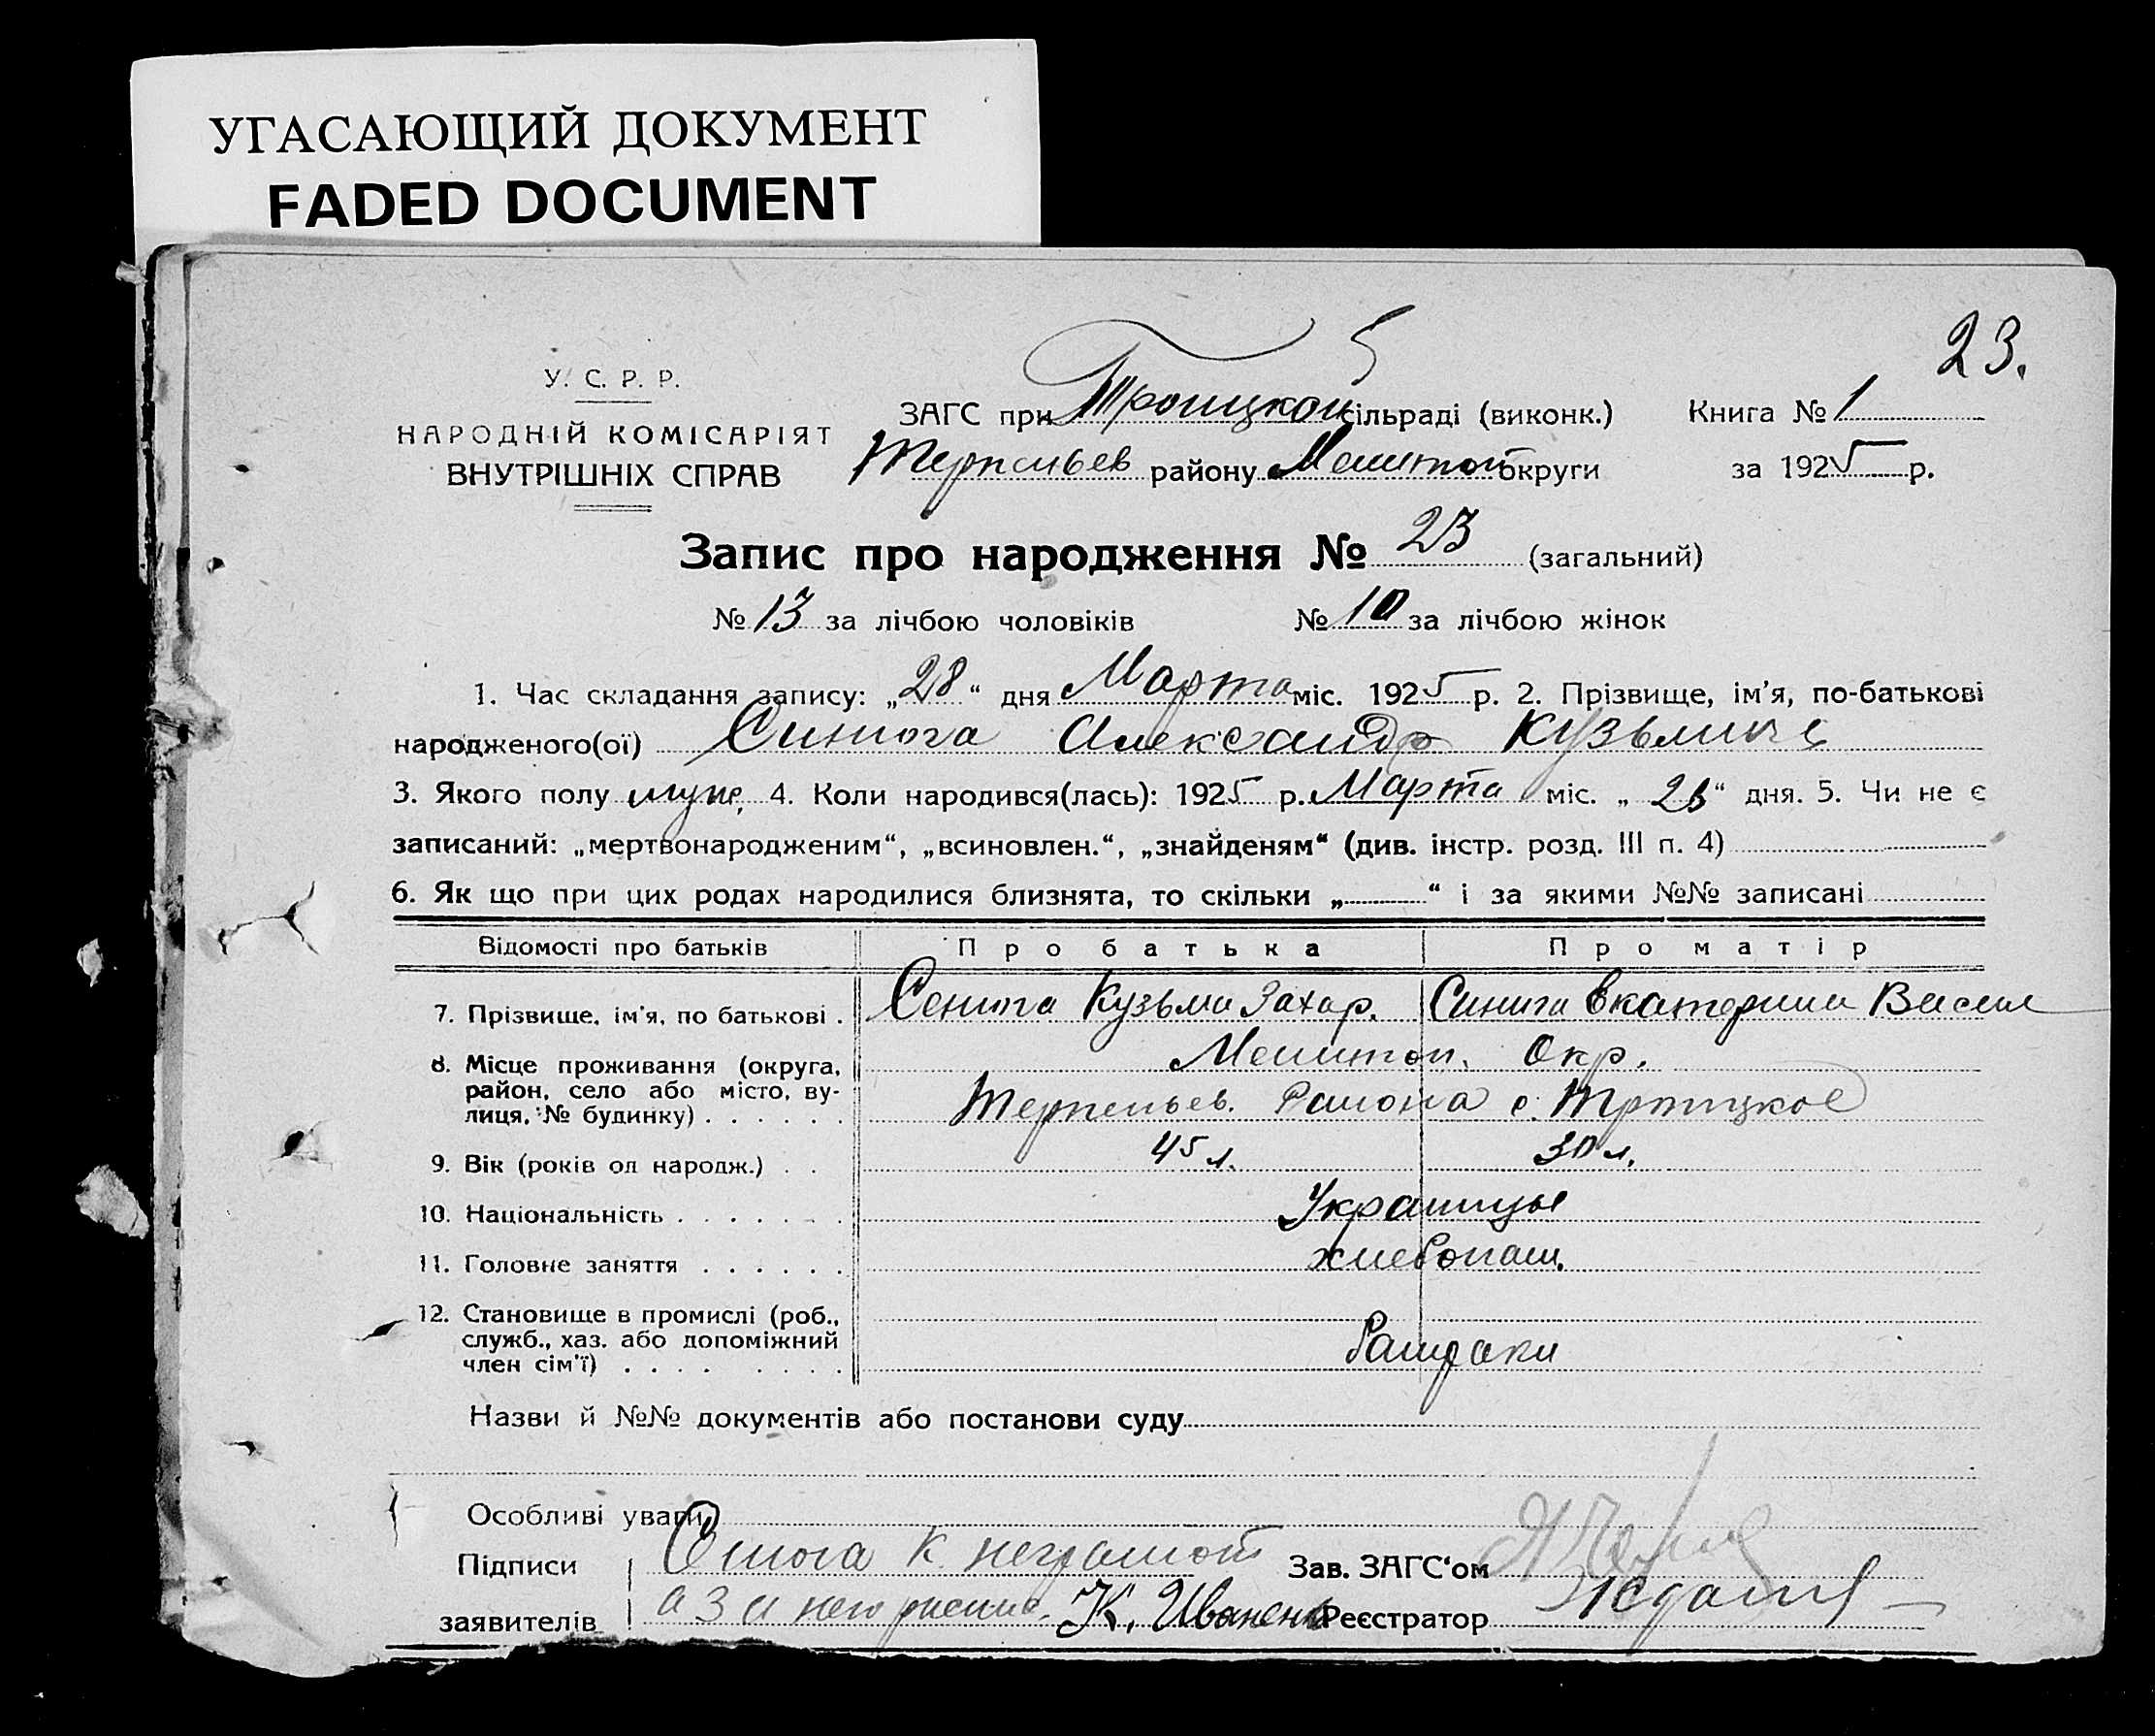 УГАСАЮЩИЙ ДОКУМЕНТ
FADED DOCUMENT
23.
У. С. Р. Р.
НАРОДНІЙ КОМІСАРІЯТ
ВНУТРІШНІХ СПРАВ
ЗАГС при Троицкой сільраді (виконк.) Книга № 1
Терпеньев району Мелитоп округи за 1925 р.
Запис про народження № 23 (загальний)
№ 13 за лічбою чоловіків № 10 за лічбою жінок
1. Час складання запису: „28“ дня Марта міс. 1925 р. 2. Прізвище, ім'я, по-батькові
народженого(ої) Синюга Александр Кузьмичь
3. Якого полу муж. 4. Коли народився(лась): 1925 р. Марта міс. „ “ дня. 5. Чи не є
записаний: „мертвонародженим“, „всиновлен.“, „знайденям“ (див. інстр. розд. III п. 4)
6. Як що при цих родах народилися близнята, то скільки „ “ і за якими №№ записані
Відомості про батьків Про батька Про матір
7. Прізвище, ім'я, по батькові . Сенюга Кузьма Захар. Синюга Екатерина Васил
8. Місце проживання (округа, Мелитоп. Окр.
район, село або місто, ву-
лиця, № будинку) . . . . . . Терпеньев. Района с. Троицкое
9. Вік (років од народж.) . . 45 л. 30 л.
10. Національність . . . . . . . Украинцы
11. Головне заняття . . . . . . хлебопаш.
12. Становище в промислі (роб.,
служб., хаз. або допоміжний
член сім'ї) . . . . . . . .
Назви й №№ документів або постанови суду
Особливі уваги
Підписи К. неграмот Зав. ЗАГС'ом
заявителів а за него К. Иваненко Реєстратор